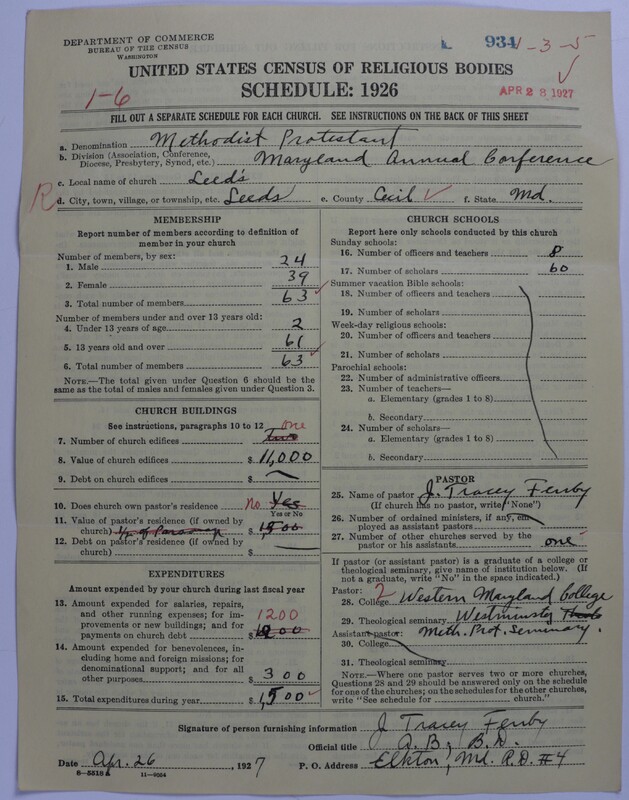 DEPARTMENT OF COMMERCE
BUREAU OF THE CENSUS
WASHINGTON
934 1-3-5
UNITED STATES CENSUS OF RELIGIOUS BODIES
SCHEDULE: 1926
APR 28 1927
1-6
FILL OUT A SEPARATE SCHEDULE FOR EACH CHURCH. SEE INSTRUCTIONS ON THE BACK OF THIS SHEET
a. Denomination Methodist Protestant
b. Division (Association, Conference, Diocese, Presbytery, Synod, etc.) Maryland Annual Conference
c. Local name of church Leeds
R d. City, town, village, or township, etc. Leeds e. County Cecil f. State Md.
MEMBERSHIP
Report number of members according to definition of
member in your church
Number of members, by sex:
1. Male 24
2. Female 39
3. Total number of members 63
Number of members under and over 13 years old:
4. Under 13 years of age 2
5. 13 years old and over 61
6. Total number of members 63
NOTE.—The total given under Question 6 should be
same as the total of males and females given under Question 3.
CHURCH BUILDINGS
See instructions, paragraphs 10 to 12
7. Number of church edifices Two one
8. Value of church edifices $ 11,000
9. Debt on church edifices $
10. Does church own pastor's residence No Yes
Yes or No
11. Value of pastor's residence (if owned by
church) $ 1500
12. Debt on pastor's residence (if owned by
church) $
EXPENDITURES
Amount expended by your church during last fiscal year
13. Amount expended for salaries, repairs,
and other running expenses; for im-
provements or new buildings; and for 1200
payments on church debt $
14. Amount expended for benevolences, in-
cluding home and foreign missions; for
denominational support; and for all
other purposes $ 300
15. Total expenditures during year $ 1,500
CHURCH SCHOOLS
Report here only schools conducted by this church
Sunday schools:
16. Number of officers and teachers 8
17. Number of scholars 60
Summer vacation Bible schools:
18. Number of officers and teachers
19. Number of scholars
Week-day religious schools:
20. Number of officers and teachers
21. Number of scholars
Parochial schools:
22. Number of administrative officers
23. Number of teachers—
a. Elementary (grades 1 to 8)
b. Secondary
24. Number of scholars—
a. Elementary (grades 1 to 8)
b. Secondary
PASTOR
25. Name of pastor J. Tracey Fenby
(If church has no pastor, write "None")
26. Number of ordained ministers, if any, em-
ployed as assistant pastors
27. Number of other churches served by the
pastor or his assistants one
If pastor (or assistant pastor) is a graduate of a college or
theological seminary, give name of institution below. (If
not a graduate, write "No" in the space indicated.)
Pastor: 2
28. College Western Maryland College
29. Theological seminary Westminster Theolo
Assistant pastor: Meth. Prot. Seminary.
30. College
31. Theological seminary
NOTE.—Where one pastor serves two or more churches,
Questions 28 and 29 should be answered only on the schedule
for one of the churches; on the schedules for the other churches,
write "See schedule for church."
Signature of person furnishing information J. Tracey Fenby
Official title A.B., B.D.
Date Apr. 26, 1927 P. O. Address Elkton, Md. R.D. #4
8—5518 A 11—9034